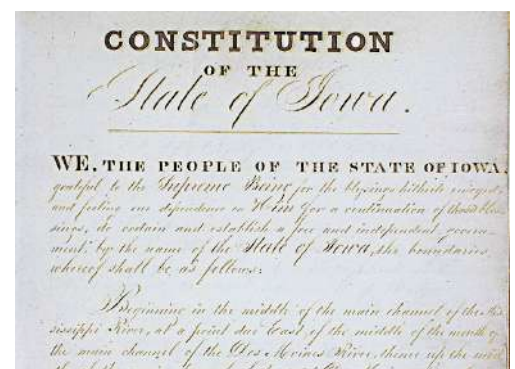 CONSTITUTION
OF THE
State of Iowa.
WE, THE PEOPLE OF THE STATE OF IOWA,
grateful to the Supreme Being for the blessings hitherto enjoyed,
and feeling our dependence on Him for a continuation of those bles-
sings, do ordain and establish a free and independent govern-
ment, by the name of the State of Iowa, the boundaries
whereof shall be as follows:
Beginning in the middle of the main channel of the Mis-
sissippi River, at a point due East of the middle of the mouth of
the main channel of the Des Moines River, thence up the